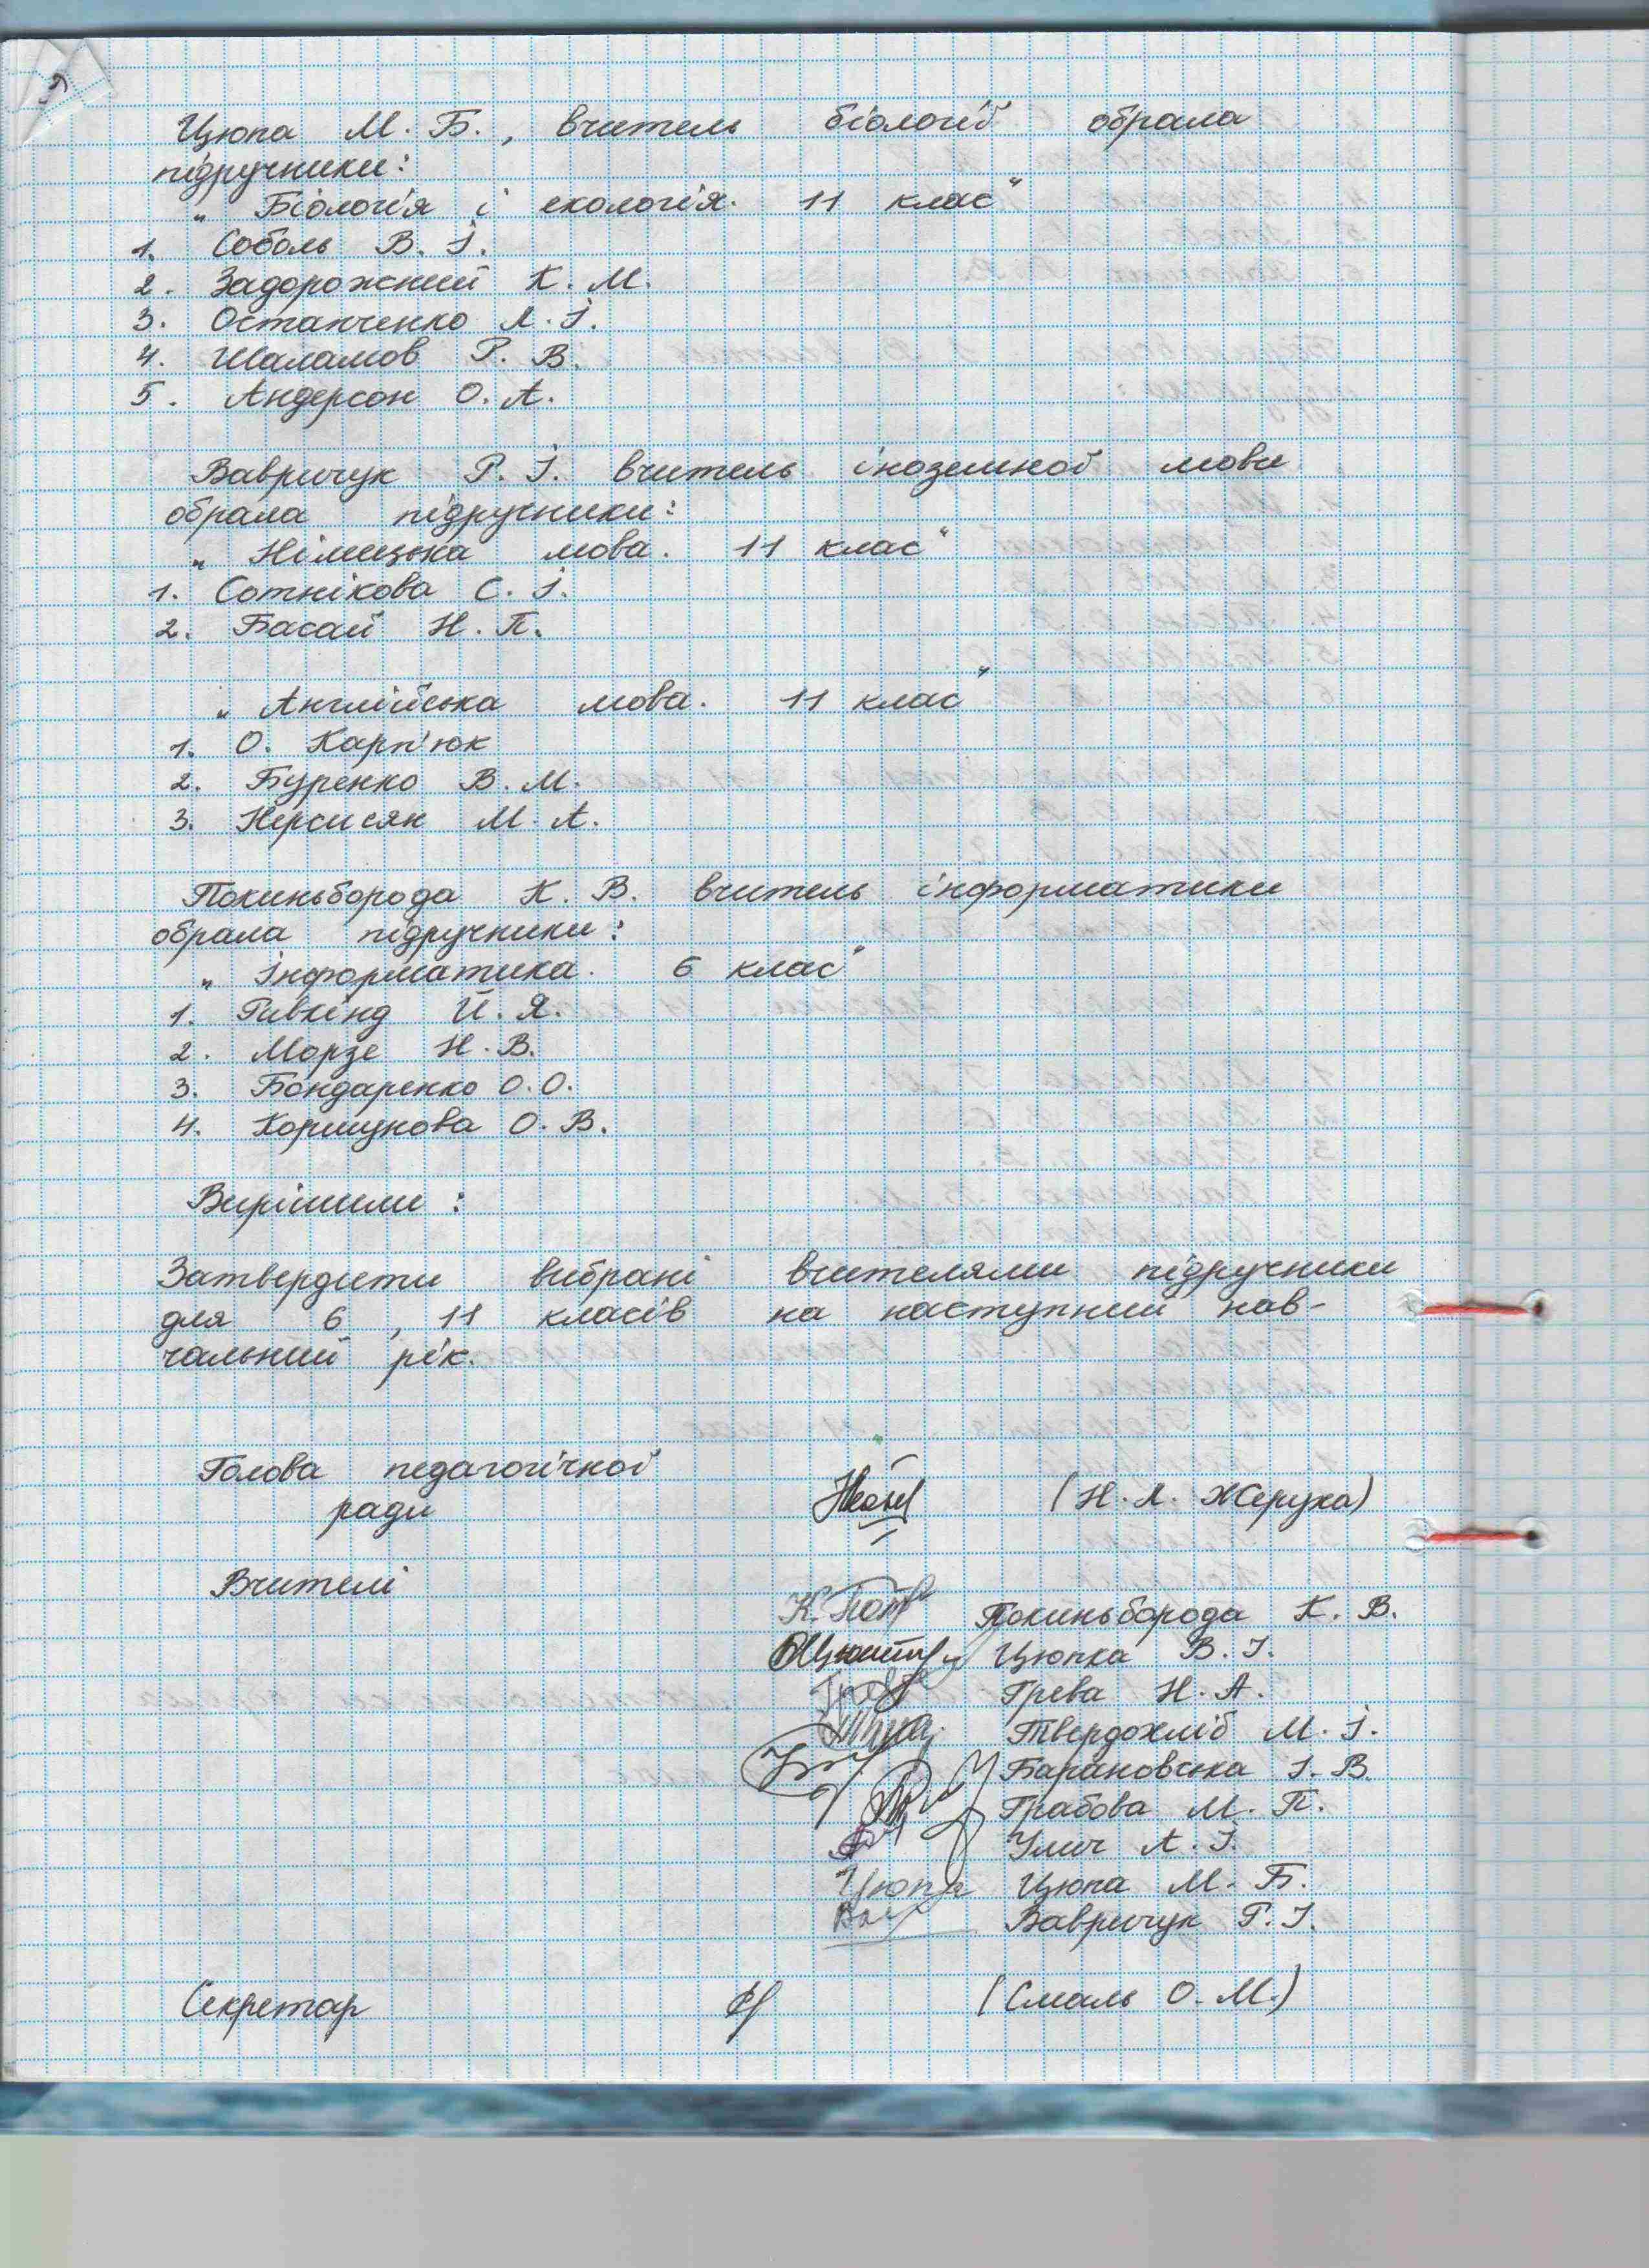 Цюпа М. Б., вчитель біології обрала
підручники:
„ Біологія і екологія. 11 клас"
1. Соболь В. І.
2. Задорожний К. М.
3. Остапченко Л. І.
4. Шаламов Р. В.
5. Андерсон О. А.
Вавричук Р. І. вчитель іноземної мови
обрала підручники:
„ Німецька мова. 11 клас"
1. Сотнікова С. І.
2. Басай Н. П.
„ Англійська мова. 11 клас"
1. О. Карп'юк
2. Буренко В. М.
3. Нерсисян М. А.
Покиньборода К. В. вчитель інформатики
обрала підручники:
„ Інформатика. 6 клас"
1. Ривкінд Й. Я.
2. Морзе Н. В.
3. Бондаренко О. О.
4. Коршунова О. В.
Вирішили:
Затвердити вибрані вчителями підручники
для 6, 11 класів на наступний нав-
чальний рік.
Голова педагогічної
ради (Н. Л. Жерука)
Вчителі
Покиньборода К. В.
Цюпка В. І.
Грева Н. А.
Твердохліб М. І.
Барановська І. В.
Грабова М. П.
Улич А. І.
Цюпа Цюпа М. Б.
Вавричук Р. І.
Секретар (Смаль О. М.)